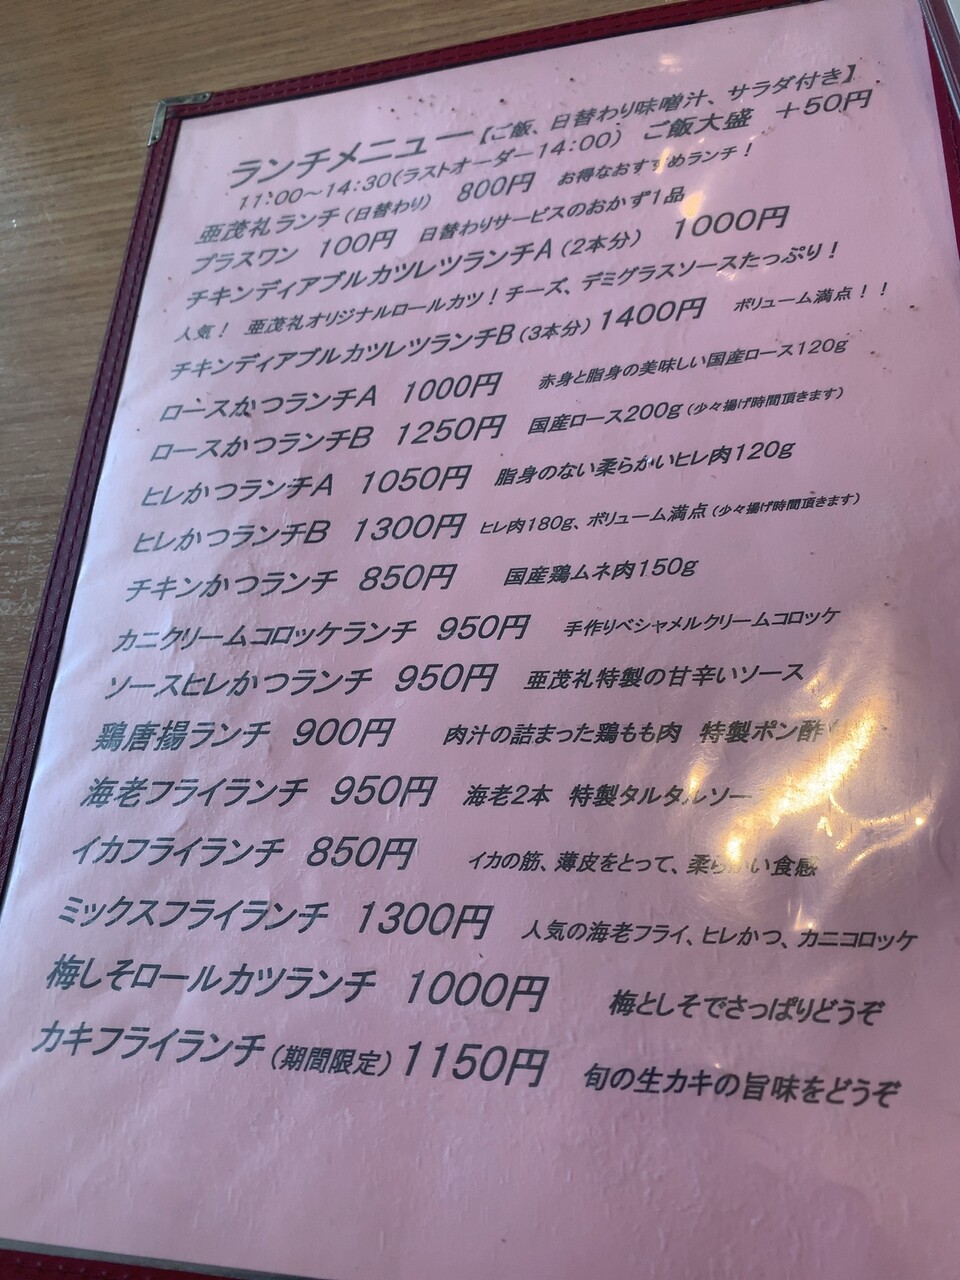 ランチメニュー【ご飯、日替わり味噌汁、サラダ付き】
11:00～14:30(ラストオーダー14:00) ご飯大盛 ＋50円
亜茂礼ランチ(日替わり) 800円 お得なおすすめランチ！
プラスワン 100円 日替わりサービスのおかず1品
チキンディアブルカツレツランチA(2本分) 1000円
人気！ 亜茂礼オリジナルロールカツ！チーズ、デミグラスソースたっぷり！
チキンディアブルカツレツランチB(3本分) 1400円 ボリューム満点！！
ロースかつランチA 1000円 赤身と脂身の美味しい国産ロース120g
ロースかつランチB 1250円 国産ロース200g(少々揚げ時間頂きます)
ヒレかつランチA 1050円 脂身のない柔らかいヒレ肉120g
ヒレかつランチB 1300円 ヒレ肉180g、ボリューム満点(少々揚げ時間頂きます)
チキンかつランチ 850円 国産鶏ムネ肉150g
カニクリームコロッケランチ 950円 手作りベシャメルクリームコロッケ
ソースヒレかつランチ 950円 亜茂礼特製の甘辛いソース
鶏唐揚ランチ 900円 肉汁の詰まった鶏もも肉 特製ポン酢
海老フライランチ 950円 海老2本 特製タルタルソー
イカフライランチ 850円 イカの筋、薄皮をとって、柔らかい食感
ミックスフライランチ 1300円 人気の海老フライ、ヒレかつ、カニコロッケ
梅しそロールカツランチ 1000円 梅としそでさっぱりどうぞ
カキフライランチ(期間限定) 1150円 旬の生カキの旨味をどうぞ